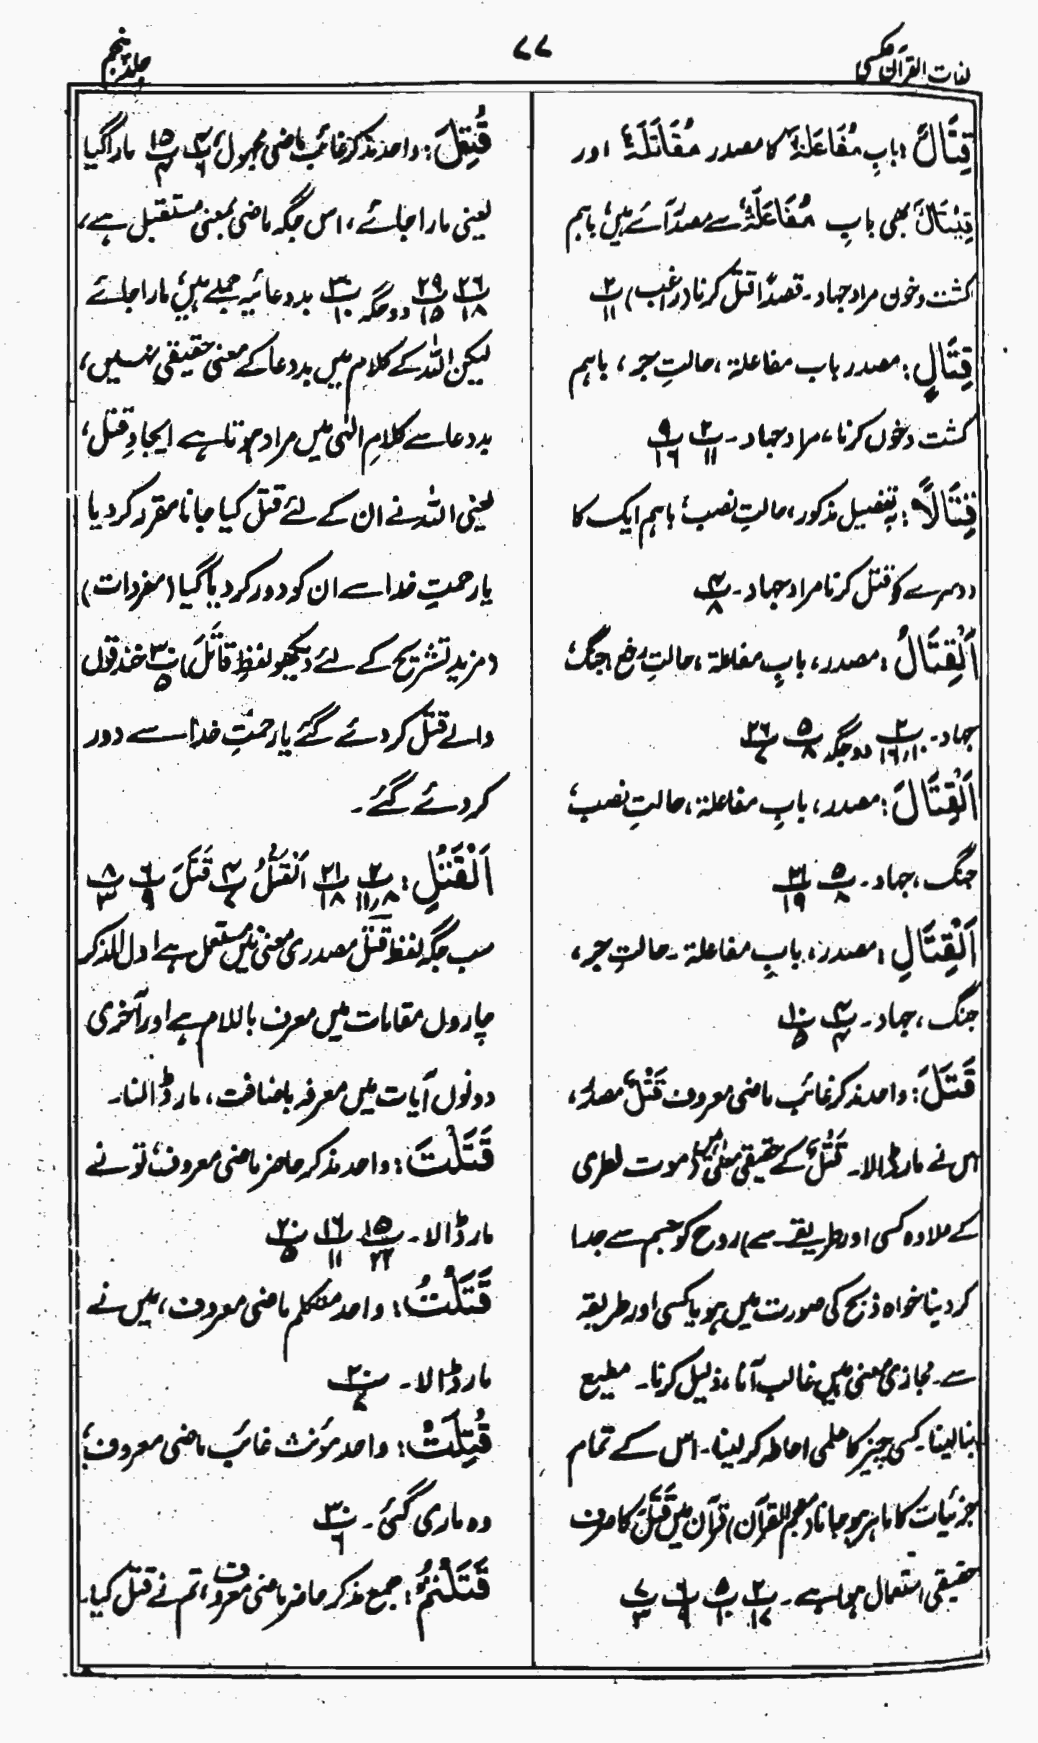 لغات القرآن عکسی
۷۷
جلد پنجم
قِتَالٌ: بابِ مُفَاعَلَۃٌ کا مصدر مُقَاتَلَۃٌ اور
قِیْتَالٌ بھی بابِ مُفَاعَلَۃٌ سے مصدر آئے ہیں باہم
کشت وخون مراد جہاد۔ قصدًا قتل کرنا (راغب) پ۲/۱۱
قِتَالٍ: مصدر باب مفاعلۃ، حالتِ جر، باہم
کشت وخوں کرنا، مراد جہاد۔ پ۲/۱۱ پ۹/۱۶
قِتَالًا: بہ تفصیل مذکور، حالتِ نصب، باہم ایک کا
دوسرے کو قتل کرنا مراد جہاد۔ پ۴/۸
اَلْقِتَالُ: مصدر، بابِ مفاعلۃ، حالتِ رفع، جنگ
جہاد۔ پ۲/۱۶،۱۰ دوجگہ پ۵/۸ پ۲۶/۷
اَلْقِتَالَ: مصدر، بابِ مفاعلۃ، حالتِ نصب،
جنگ، جہاد۔ پ۵/۸ پ۲۱/۱۹
اَلْقِتَالِ: مصدر، بابِ مفاعلۃ۔ حالتِ جر،
جنگ، جہاد۔ پ۴/۴ پ۱۰/۵
قَتَلَ: واحد مذکر غائب ماضی معروف قَتْلٌ مصدر،
اس نے مار ڈالا۔ قَتْلٌ کے حقیقی معنی ہیں (موت فطری
کے علاوہ کسی اور طریقہ سے) روح کو جسم سے جدا
کردینا خواہ ذبح کی صورت میں ہو یا کسی اور طریقہ
سے۔ مجازی معنی ہیں غالب آنا، ذلیل کرنا۔ مطیع
بنالینا۔ کسی چیز کا علمی احاطہ کرلینا۔ اس کے تمام
جزئیات کا ماہر ہوجانا (معجم القرآن) قرآن میں قَتَلَ کا صرف
حقیقی استعمال ہوا ہے۔ پ۲/۱۷ پ۵/۱۰ پ۶/۹ پ۷/۳
قُتِلَ: واحد مذکر غائب ماضی مجہول، پ۴/۶ پ۱۵/۴ مارا گیا
یعنی مارا جائے، اس جگہ ماضی بمعنی مستقبل ہے،
پ۲۶/۱۸ پ۲۹/۱۵ دوجگہ پ۳۰/۱۰ بددعائیہ جملے ہیں، مارا جائے
لیکن اللہ کے کلام میں بددعا کے معنی حقیقی نہیں،
بددعا سے کلامِ الٰہی میں مراد ہوتا ہے ایجادِ قتل،
یعنی اللہ نے ان کے لئے قتل کیا جانا مقرر کردیا
یا رحمتِ خدا سے ان کو دور کردیا گیا (مفردات)
(مزید تشریح کے لئے دیکھو لفظِ قَاتَلَ) پ۳۰/۵ خندقوں
والے قتل کردئے گئے یا رحمتِ خدا سے دور
کردئے گئے۔
اَلْقَتْلِ: پ۲/۱۱،۸ پ۲۱/۱۸ اَلْقَتْلُ پ۴/۷ قَتْلَ پ۶/۹ پ۸/۳
سب جگہ لفظ قتل مصدری معنی میں مستعمل ہے اول الذکر
چاروں مقامات میں معرف باللام ہے اور آخری
دونوں آیات میں معرفہ باضافت، مار ڈالنا۔
قَتَلْتَ: واحد مذکر حاضر ماضی معروف، تو نے
مار ڈالا۔ پ۱۵/۲۲ پ۱۶/۱۱ پ۲۰/۵
قَتَلْتُ: واحد متکلم ماضی معروف، میں نے
مار ڈالا۔ پ۲۰/۷
قُتِلَتْ: واحد مؤنث غائب ماضی معروف،
وہ ماری گئی۔ پ۳۰/۶
قَتَلْتُمْ: جمع مذکر حاضر ماضی معروف، تم نے قتل کیا۔